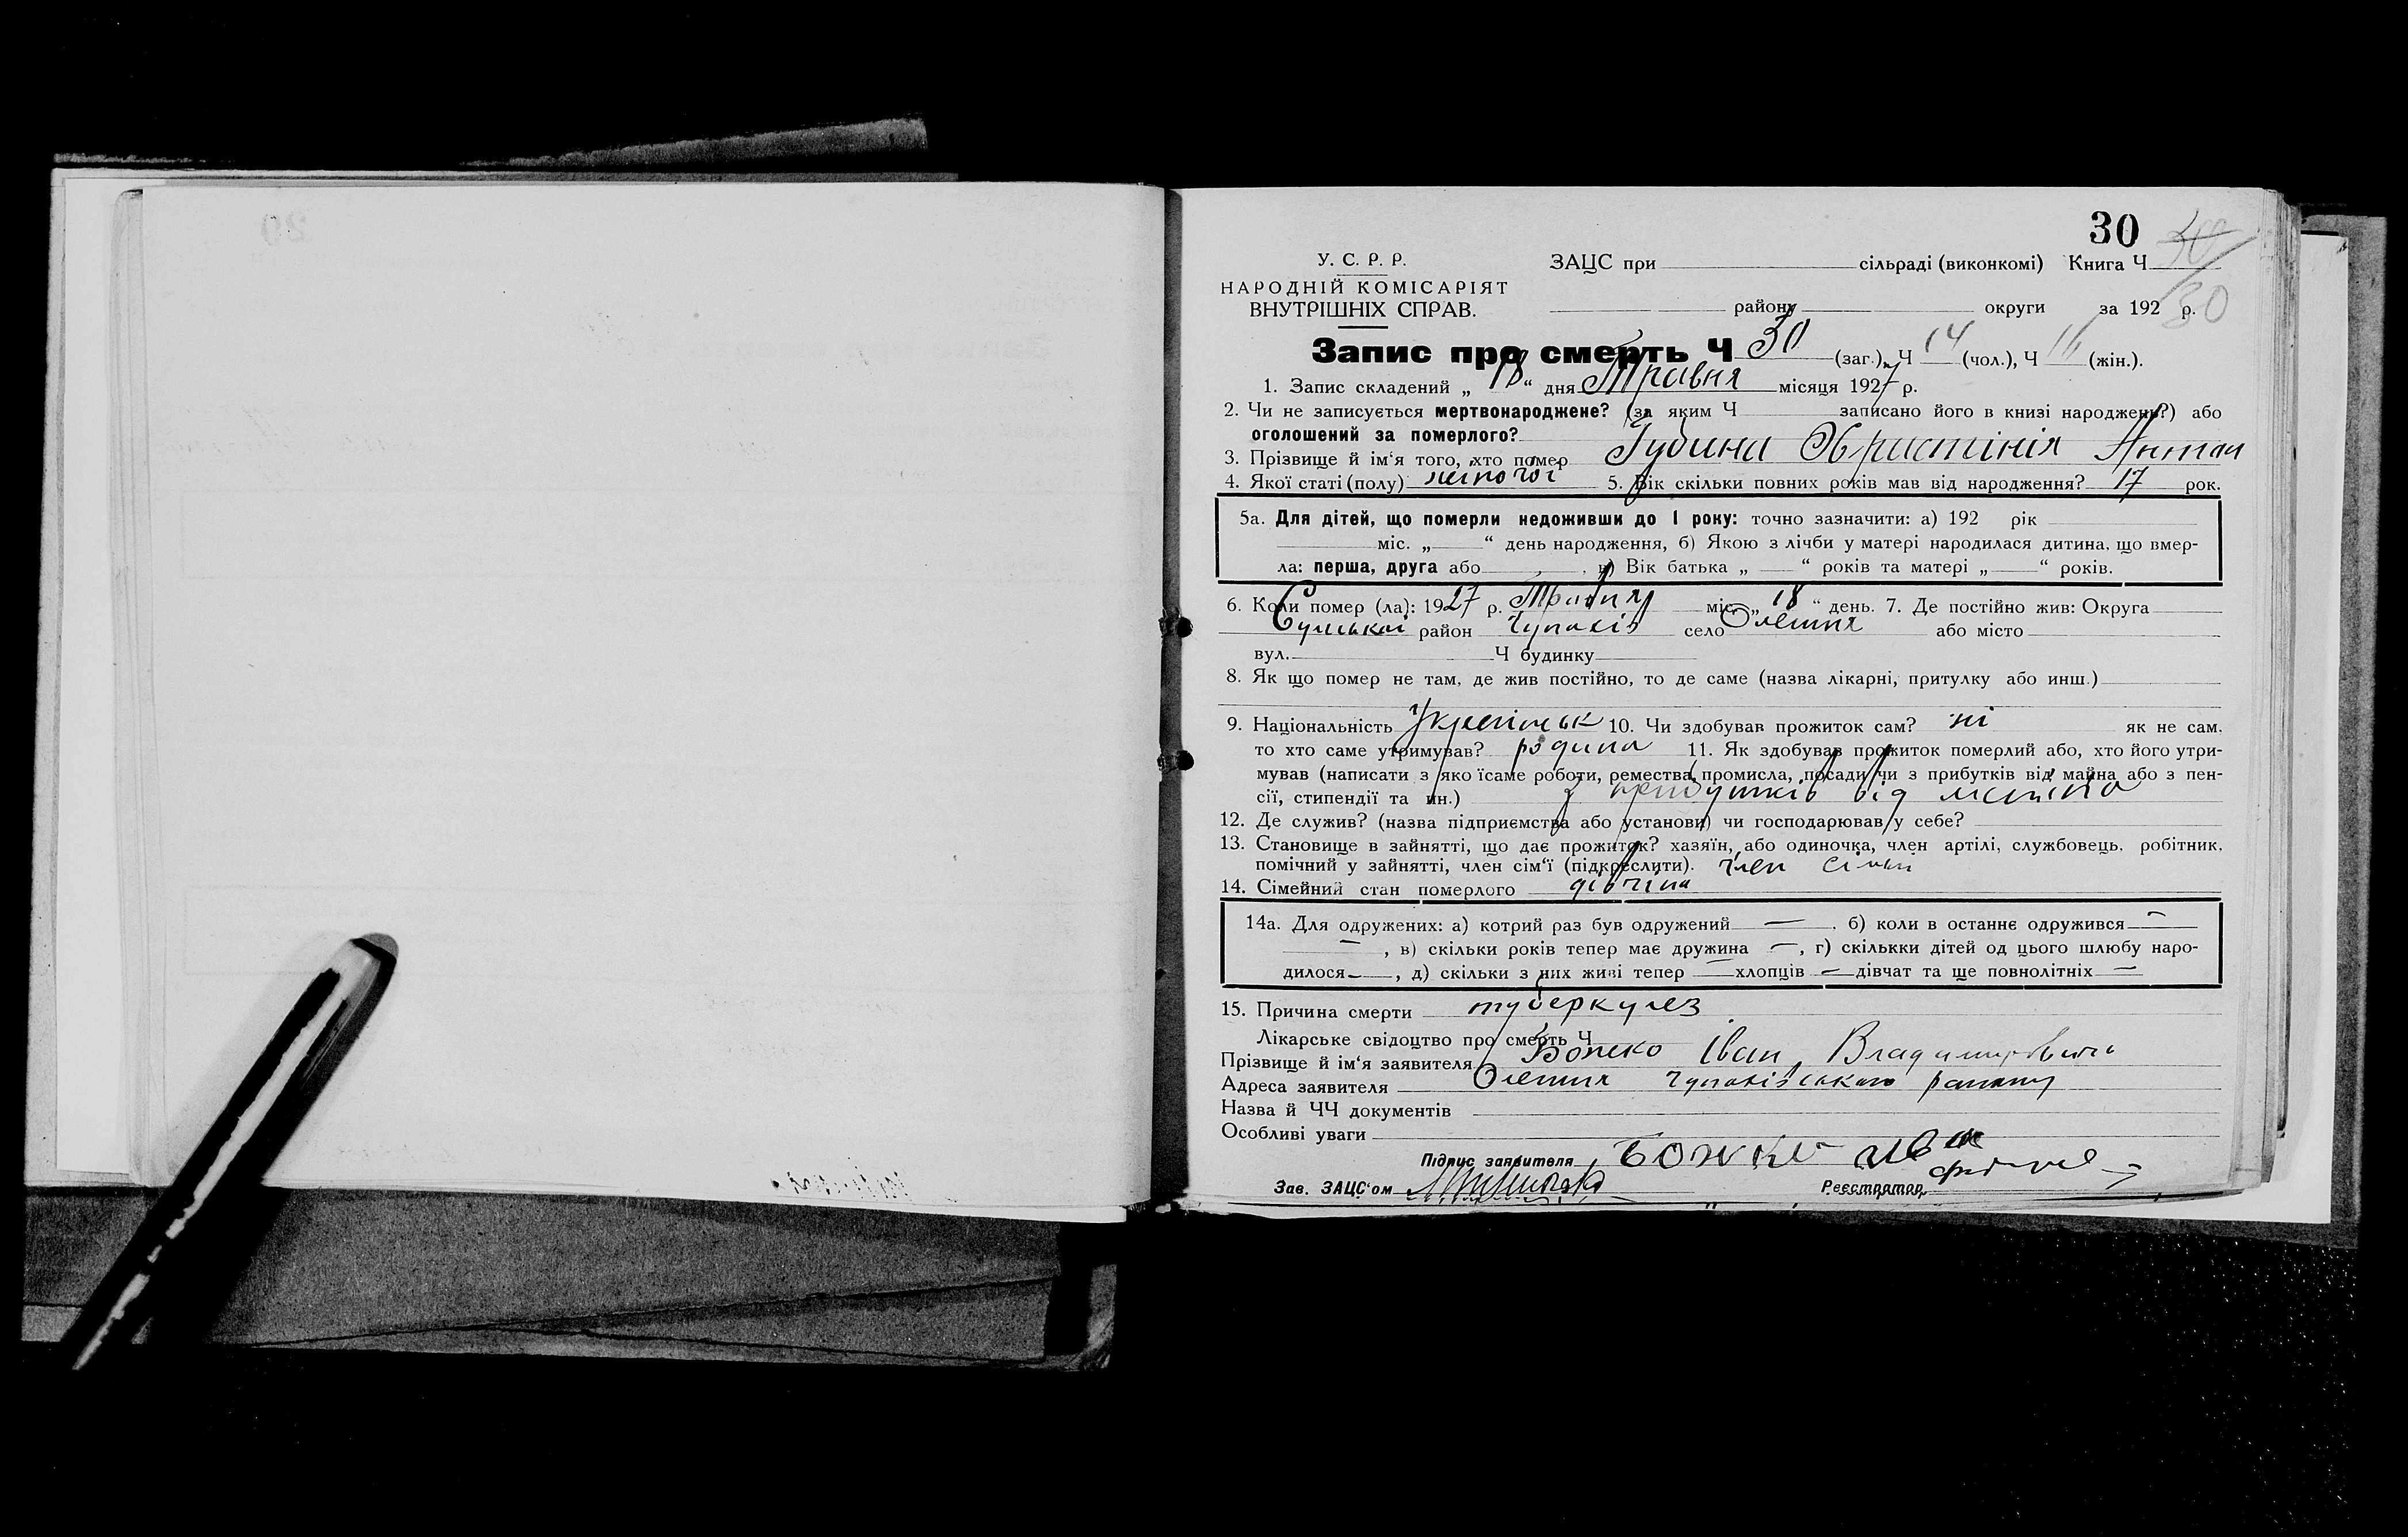 30
У. С. Р. Р. ЗАЦС при сільраді (виконкомі) Книга Ч 30
НАРОДНІЙ КОМІСАРІЯТ
ВНУТРІШНІХ СПРАВ. району округи за 192 р.
Запис про смерть Ч 30 (заг.), Ч 14 (чол.), Ч 16 (жін.).
1. Запис складений „ 18 “ дня Травня місяця 1927 р.
2. Чи не записується мертвонароджене? (за яким Ч записано його в книзі народжень?) або
оголошений за померлого?
3. Прізвище й ім‘я того, хто помер Губина Христінія Антон
4. Якої статі (полу) жіночої 5. Вік скільки повних років мав від народження? 17 рок.
5а. Для дітей, що померли недоживши до 1 року: точно зазначити: а) 192 рік
міс. „ “ день народження, б) Якою з лічби у матері народилася дитина, що вмер-
ла: перша, друга або , в) Вік батька „ “ років та матері „ “ років.
6. Коли помер (ла): 1927 р. Травня міс. „ 18 “ день. 7. Де постійно жив: Округа
Сумської район Чупахів село Олешня або місто
вул. Ч будинку
8. Як що помер не там, де жив постійно, то де саме (назва лікарні, притулку або инш.)
9. Національність 10. Чи здобував прожиток сам? ні як не сам,
то хто саме утримував? родина 11. Як здобував прожиток померлий або, хто його утри-
мував (написати з яко їсаме роботи, ремества, промисла, посади чи з прибутків від майна або з пен-
сії, стипендії та ин.) з прибутків від майна
12. Де служив? (назва підприємства або установи) чи господарював у себе?
13. Становище в зайнятті, що дає прожиток? хазяїн, або одиночка, член артілі, службовець, робітник,
помічний у зайнятті, член сім‘ї (підкреслити). член сімьі
14. Сімейний стан померлого дівчина
14а. Для одружених: а) котрий раз був одружений — , б) коли в останнє одружився —
— , в) скільки років тепер має дружина — , г) скількки дітей од цього шлюбу наро-
дилося — , д) скільки з них живі тепер — хлопців — дівчат та ще повнолітніх —
15. Причина смерти туберкулез
Лікарське свідоцтво про смерть Ч
Прізвище й ім‘я заявителя Божко Іван Владимирович
Адреса заявителя Олешня Чупахівського району
Назва й ЧЧ документів
Особливі уваги
Підпис заявителя Божко
Зав. ЗАЦС‘ом Реєстратор